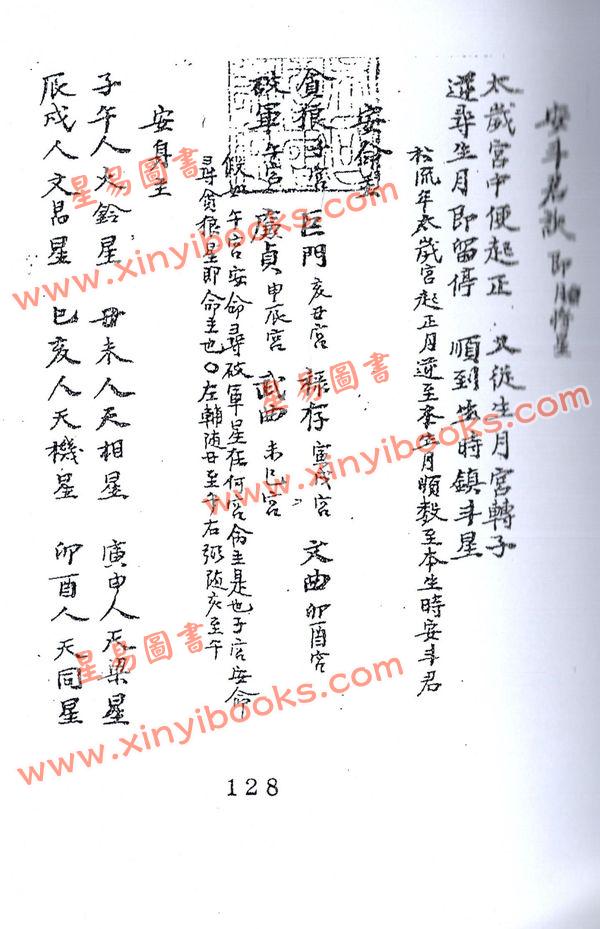 安斗君訣 即月將星
太歲宮中便起正 又從生月宮轉子
逆尋生月即留停 順到生時鎮斗星
於流年太歲宮起正月逆至本生月順數至本生時安斗君
安命主
貪狼子宮 巨門亥丑宮 祿存寅戌宮 文曲卯酉宮
破軍午宮 廉貞申辰宮 武曲未巳宮
假如午宮安命尋破軍星在何宮命主是也子宮安命
尋貪狼星即命主也○左輔隨丑至午右弼隨亥至午
安身主
子午人火鈴星 丑未人天相星 寅申人天梁星
辰戌人文昌星 巳亥人天機星 卯酉人天同星
128
星易圖書
www.xinyibooks.com
星易圖書
www.xinyibooks.com
星易圖書
www.xinyibooks.com
星易圖書
www.xinyibooks.com